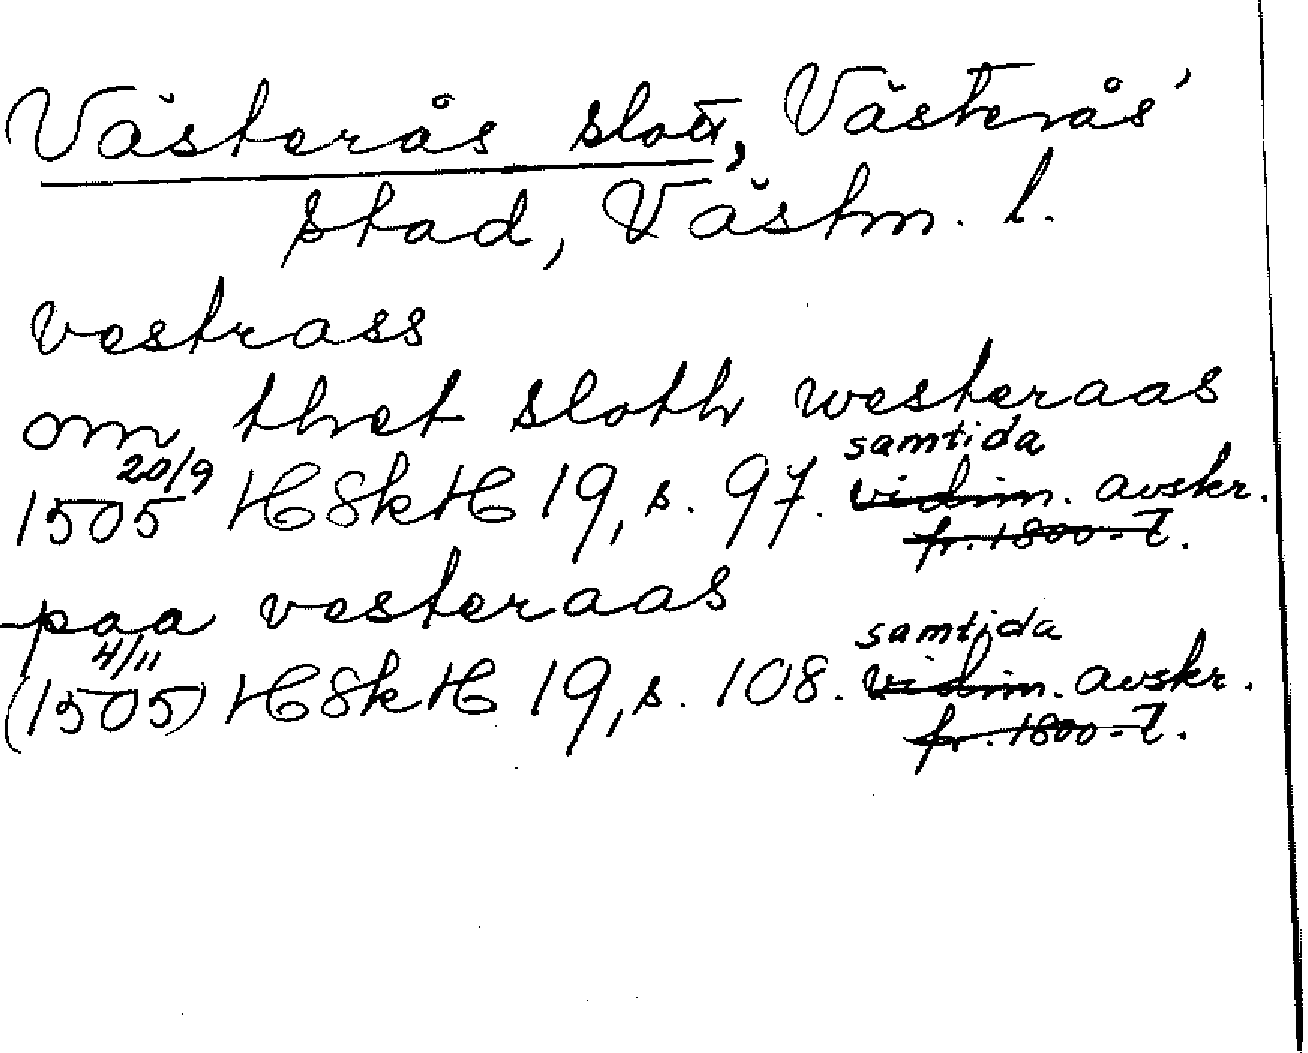 Västerås slott, Västerås
stad, Västm. l.
vestrass
om thet sloth westeraas
1505 20/9 HSkH 19, s. 97. samtida vidim. avskr.
fr. 1800-t.
paa vesteraas
(1505) 4/11 HSkH 19, s. 108. samtida vidim. avskr.
fr. 1800-t.